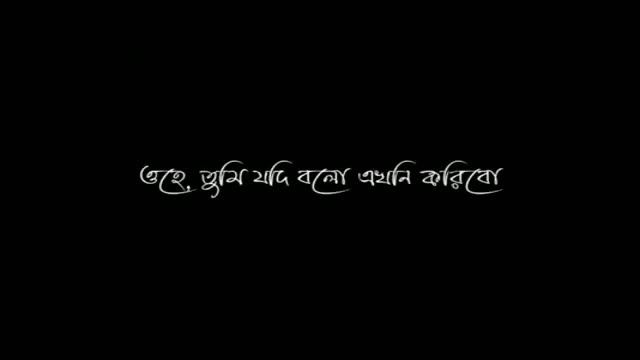 ওহে, তুমি যদি বলো এখনি করিবো